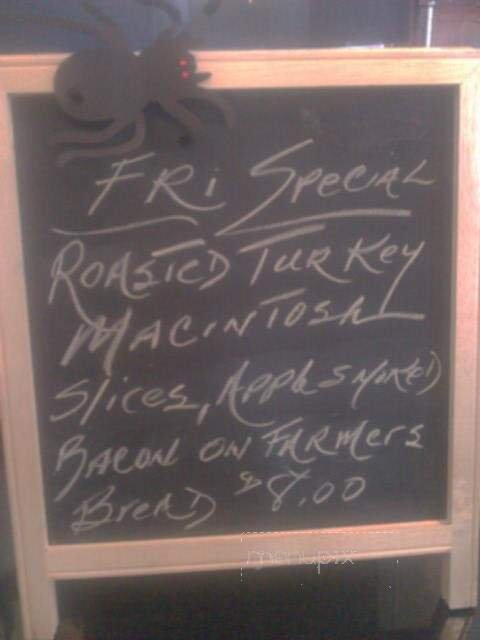 FRi Special
Roasted Turkey
Macintosh
Slices, Apple Smoked
Bacon on Farmers
Bread $8.00
menupix